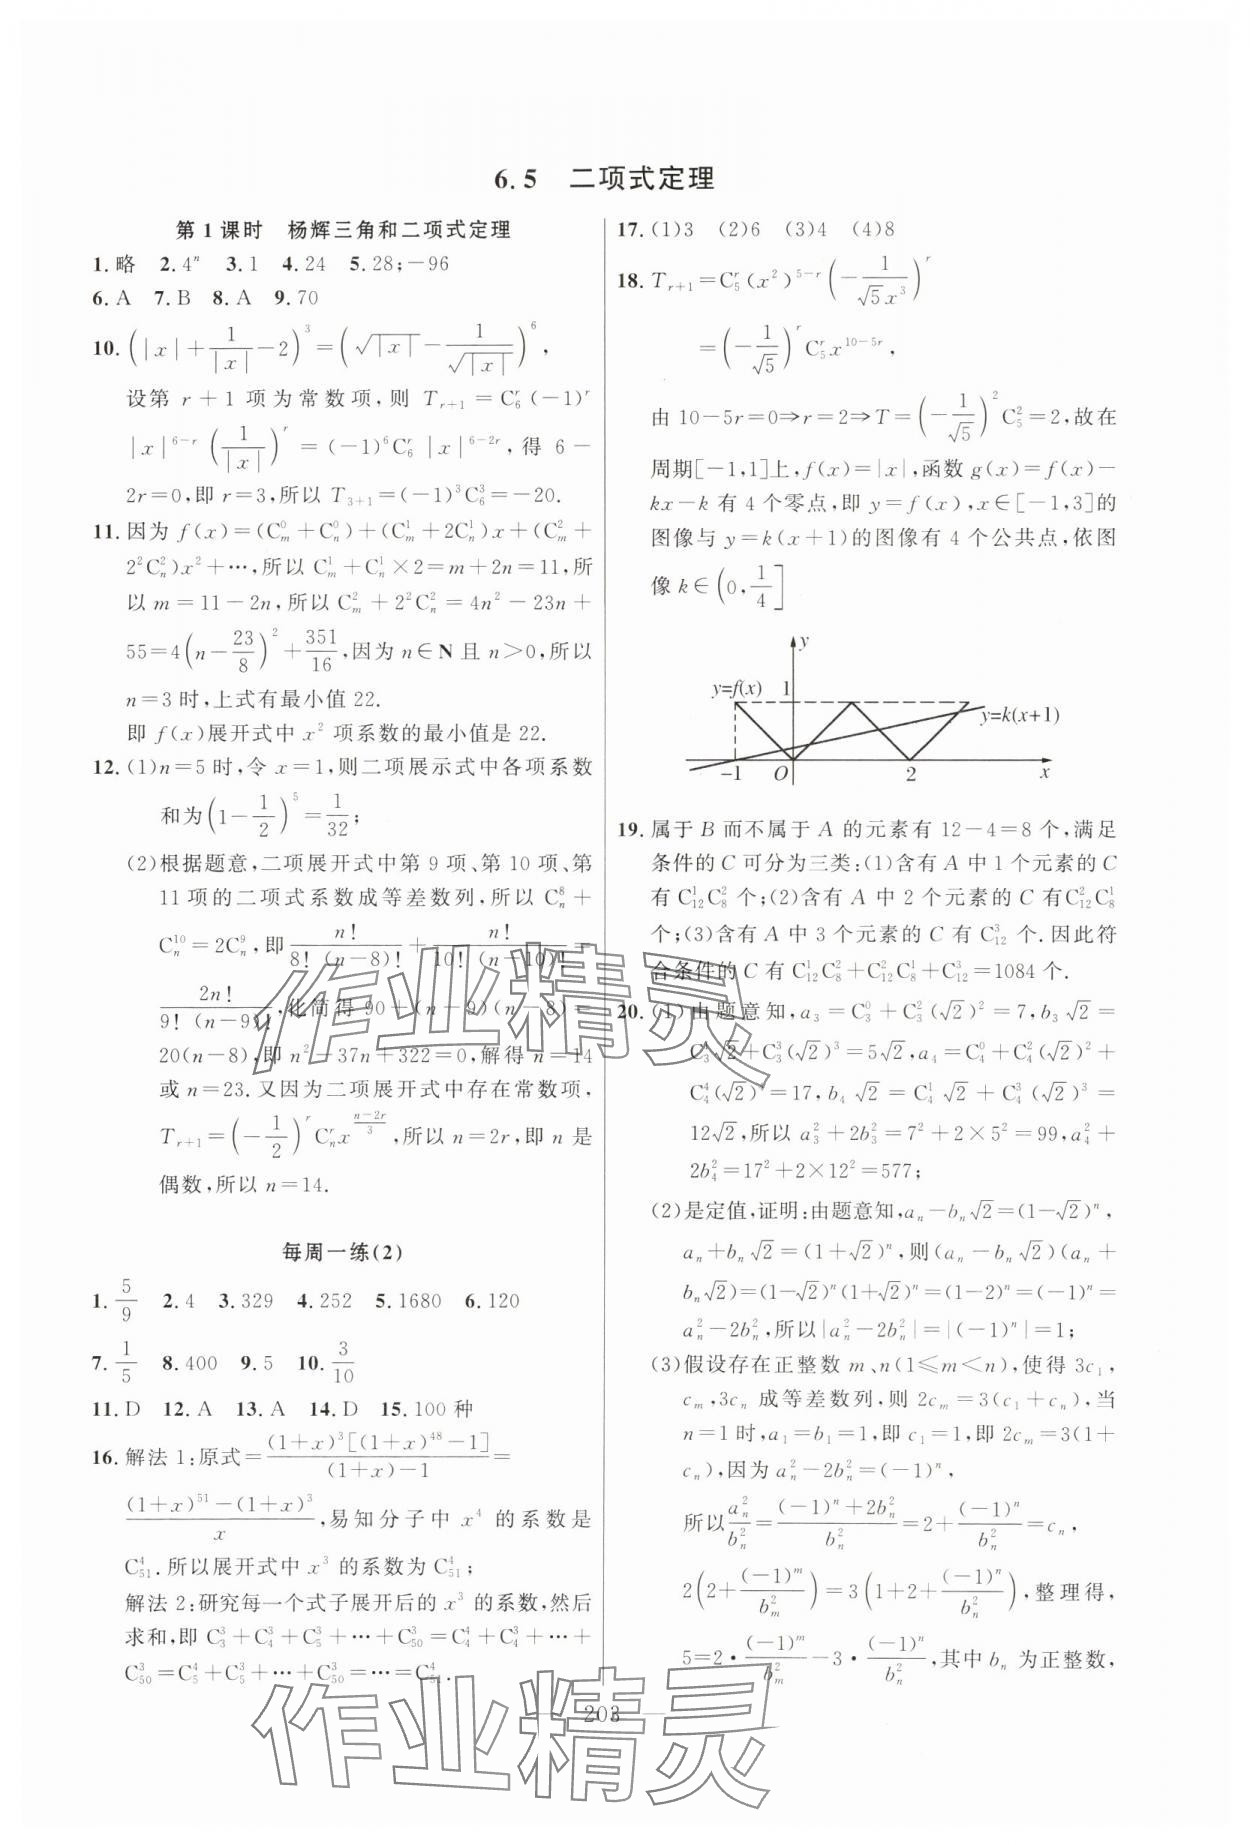 6.5　二项式定理
第1课时　杨辉三角和二项式定理
1.略　2.4ⁿ　3.1　4.24　5.28;−96
6.A　7.B　8.A　9.70
10.(|x|+1/|x|−2)³=(√|x|−1/√|x|)⁶,
设第 r+1 项为常数项,则 T_{r+1}=C₆ʳ(−1)ʳ
|x|^{6−r}(1/|x|)ʳ=(−1)⁶C₆ʳ|x|^{6−2r},得 6−
2r=0,即 r=3,所以 T_{3+1}=(−1)³C₆³=−20.
11.因为 f(x)=(C_m^0+C_n^0)+(C_m^1+2C_n^1)x+(C_m^2+
2²C_n^2)x²+…,所以 C_m^1+C_n^1×2=m+2n=11,所
以 m=11−2n,所以 C_m^2+2²C_n^2=4n²−23n+
55=4(n−23/8)²+351/16,因为 n∈N 且 n>0,所以
n=3 时,上式有最小值 22.
即 f(x)展开式中 x² 项系数的最小值是 22.
12.(1)n=5 时,令 x=1,则二项展示式中各项系数
和为(1−1/2)⁵=1/32;
(2)根据题意,二项展开式中第 9 项、第 10 项、第
11 项的二项式系数成等差数列,所以 C_n^8+
C_n^{10}=2C_n^9,即 n!/(8!(n−8)!)+n!/(10!(n−10)!)=
2n!/(9!(n−9)!),化简得 90+(n−9)(n−8)=
20(n−8),即 n²−37n+322=0,解得 n=14
或 n=23.又因为二项展开式中存在常数项,
T_{r+1}=(−1/2)^r C_n^r x^{(n−2r)/3},所以 n=2r,即 n 是
偶数,所以 n=14.
每周一练(2)
1.5/9　2.4　3.329　4.252　5.1680　6.120
7.1/5　8.400　9.5　10.3/10
11.D　12.A　13.A　14.D　15.100 种
16.解法 1:原式=(1+x)³[(1+x)⁴⁸−1]/((1+x)−1)=
((1+x)⁵¹−(1+x)³)/x,易知分子中 x⁴ 的系数是
C_{51}^4.所以展开式中 x³ 的系数为 C_{51}^4;
解法 2:研究每一个式子展开后的 x³ 的系数,然后
求和,即 C_3^3+C_4^3+C_5^3+…+C_{50}^3=C_4^4+C_4^3+…+
C_{50}^3=C_5^4+C_5^3+…+C_{50}^3=…=C_{51}^4.
17.(1)3　(2)6　(3)4　(4)8
18.T_{r+1}=C_5^r(x²)^{5−r}(−1/(√5x³))^r
=(−1/√5)^r C_5^r x^{10−5r},
由 10−5r=0⇒r=2⇒T=(−1/√5)²C_5^2=2,故在
周期[−1,1]上,f(x)=|x|,函数 g(x)=f(x)−
kx−k 有 4 个零点,即 y=f(x),x∈[−1,3]的
图像与 y=k(x+1)的图像有 4 个公共点,依图
像 k∈(0,1/4]
y
y=f(x)　1
y=k(x+1)
−1　O　2　x
19.属于 B 而不属于 A 的元素有 12−4=8 个,满足
条件的 C 可分为三类:(1)含有 A 中 1 个元素的 C
有 C_{12}^1C_8^2 个;(2)含有 A 中 2 个元素的 C 有C_{12}^2C_8^1
个;(3)含有 A 中 3 个元素的 C 有 C_{12}^3 个.因此符
合条件的 C 有 C_{12}^1C_8^2+C_{12}^2C_8^1+C_{12}^3=1084 个.
20.(1)由题意知,a₃=C_3^0+C_3^2(√2)²=7,b₃√2=
C_3^1√2+C_3^3(√2)³=5√2,a₄=C_4^0+C_4^2(√2)²+
C_4^4(√2)⁴=17,b₄√2=C_4^1√2+C_4^3(√2)³=
12√2,所以 a₃²+2b₃²=7²+2×5²=99,a₄²+
2b₄²=17²+2×12²=577;
(2)是定值,证明:由题意知,a_n−b_n√2=(1−√2)ⁿ,
a_n+b_n√2=(1+√2)ⁿ,则(a_n−b_n√2)(a_n+
b_n√2)=(1−√2)ⁿ(1+√2)ⁿ=(1−2)ⁿ=(−1)ⁿ=
a_n²−2b_n²,所以|a_n²−2b_n²|=|(−1)ⁿ|=1;
(3)假设存在正整数 m、n(1≤m<n),使得 3c₁,
c_m,3c_n 成等差数列,则 2c_m=3(c₁+c_n),当
n=1 时,a₁=b₁=1,即 c₁=1,即 2c_m=3(1+
c_n),因为 a_n²−2b_n²=(−1)ⁿ,
所以 a_n²/b_n²=((−1)ⁿ+2b_n²)/b_n²=2+(−1)ⁿ/b_n²=c_n,
2(2+(−1)^m/b_m²)=3(1+2+(−1)ⁿ/b_n²),整理得,
5=2·(−1)^m/b_m²−3·(−1)ⁿ/b_n²,其中 b_n 为正整数,
203
作业精灵
作业精灵